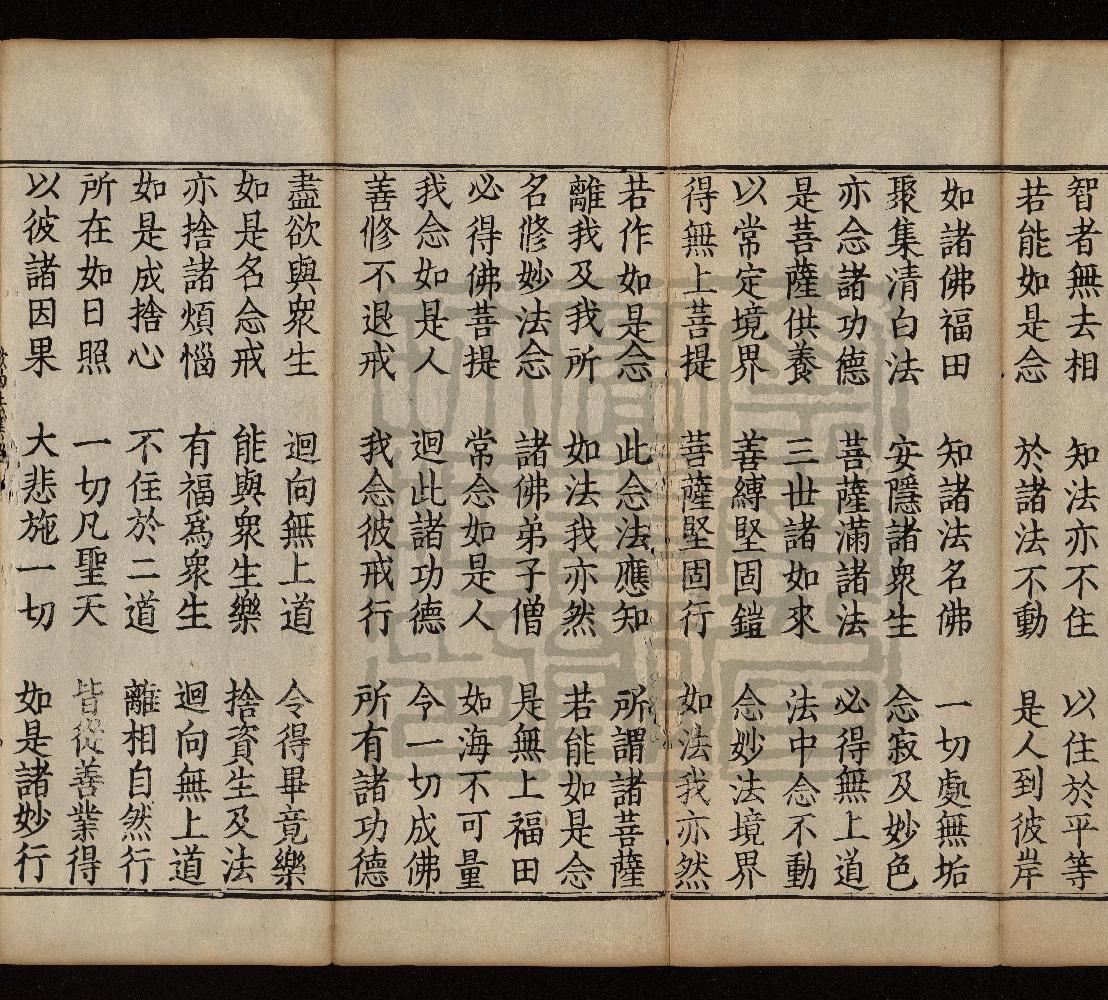 智者無去相　知法亦不住　以住於平等
若能如是念　於諸法不動　是人到彼岸
如諸佛福田　知諸法名佛　一切處無垢
聚集清白法　安隱諸衆生　念寂及妙色
亦念諸功德　菩薩滿諸法　必得無上道
是菩薩供養　三世諸如來　法中念不動
以常定境界　善縛堅固鎧　念妙法境界
得無上菩提　菩薩堅固行　如法我亦然
若作如是念　此念法應知　所謂諸菩薩
離我及我所　如法我亦然　若能如是念
名修妙法念　諸佛弟子僧　是無上福田
必得佛菩提　常念如是人　如海不可量
我念如是人　迴此諸功德　令一切成佛
善修不退戒　我念彼戒行　所有諸功德
盡欲與衆生　迴向無上道　令得畢竟樂
如是名念戒　能與衆生樂　捨資生及法
亦捨諸煩惱　有福爲衆生　迴向無上道
如是成捨心　不住於二道　離相自然行
所在如日照　一切凡聖天　皆從善業得
以彼諸因果　大悲施一切　如是諸妙行